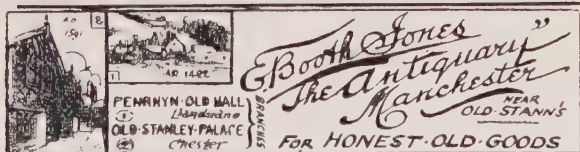 A.D
1591
2
1
A.D. 1422
PENRHYN·OLD HALL
1 Llandudno
OLD·STANLEY·PALACE
2 Chester
BRANCHES
E. Booth Jones
"The Antiquary"
Manchester
NEAR
OLD·ST ANN'S
FOR HONEST·OLD·GOODS